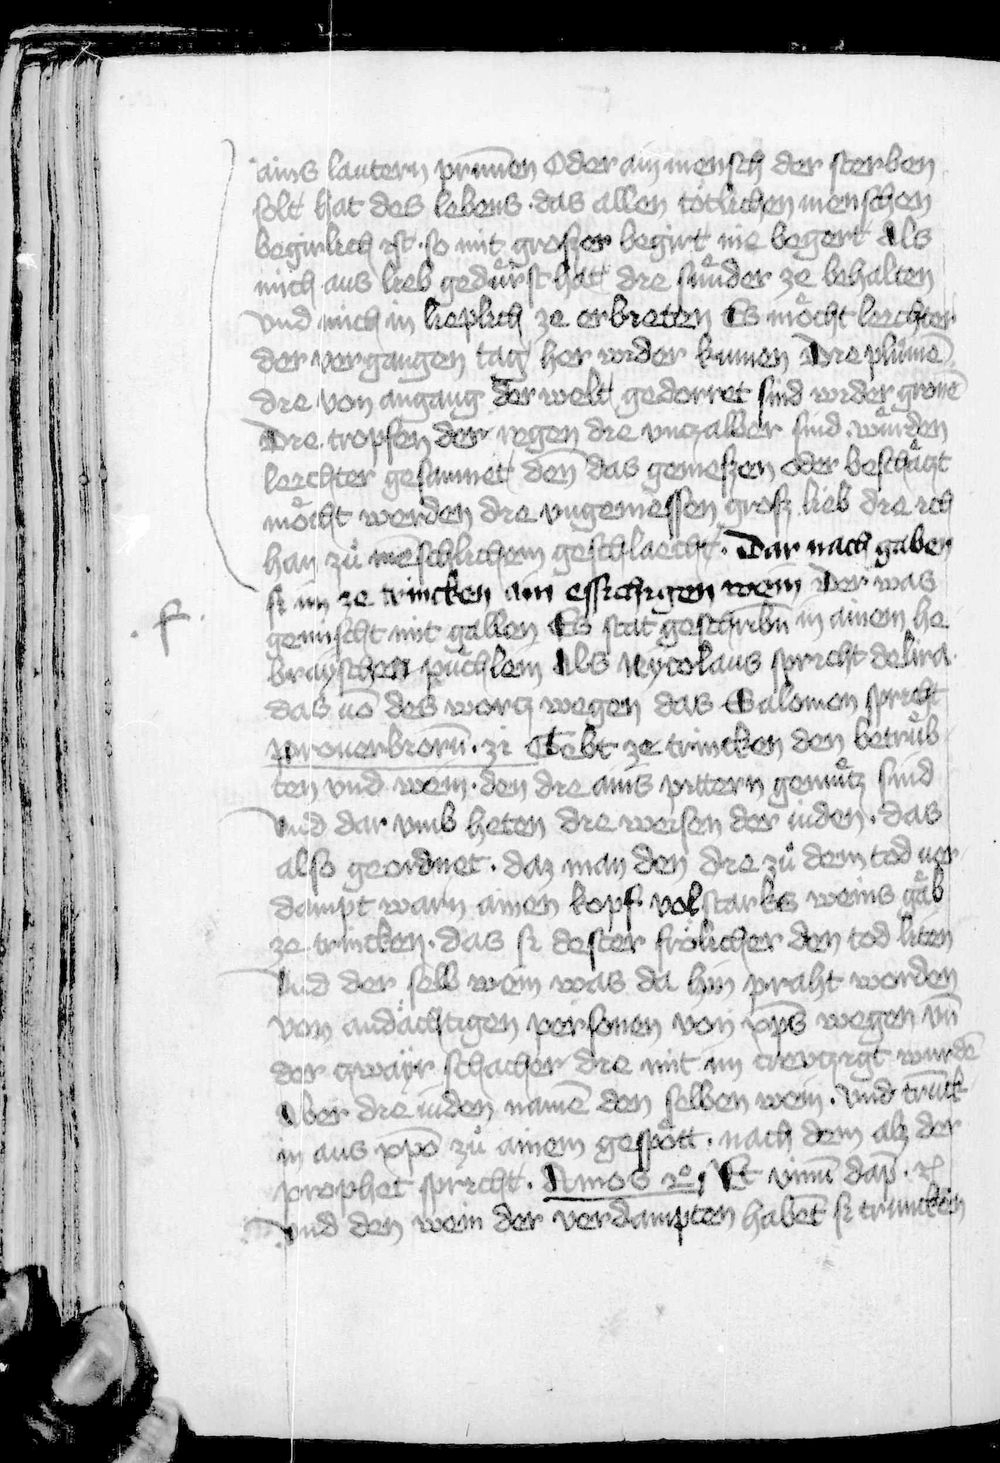 ains lautern prunnen Oder ain mensch der sterben
solt hat des lebens · das allen tötlichen menschen
begirlich ist · so mit grosser begirt nie begert Als
mich aus lieb gedürst hat die sünder ze behalten
Und mich in lieplich ze erbieten Es möcht leichter
der vergangen tag her wider kumen Die plümē
die von angang der welt gedorret sind wider gronē
Die tropfen der regen die vntzalber sind · würden
leichter gesammet den̄ das gemessen oder beschäczt
möcht werden die vngemessen gross lieb die ich
han zů mēschlichem geschlaecht · Dar nach gaben
si im ze trincken ain essichigen wein Der was
· f ·
gemischt mit gallen Es stat geschribn̄ in ainem he
brayschen půchlein Als Nycolaus spricht delira ·
das uō des worcz wegen das Salomon spricht
prouerbiorū · xxxi Gebt ze trincken den betrüb
ten vnd wein · den die ains pittern gemütz sind
Vnd dar vmb heten die weisen der iuden · das
also geordnet · daz man den die zů dem tod ver
dampt warn ainen kopf vol starks weins gäb
ze trincken · das si dester frölicher den tod liten
Vnd der selb wein was da hin praht worden
von andächtigen personen von xp̄s wegen vn̄
der zwayr schacher die mit im creutzigt wurdē
Aber die iuden namē den selben wein · Vnd trunk
in aus xp̄o zů ainem gespött · nach dem alz der
prophet spricht · Amos 2º Et vinū dāp ·
Vnd den wein der verdampten habēt si truncken